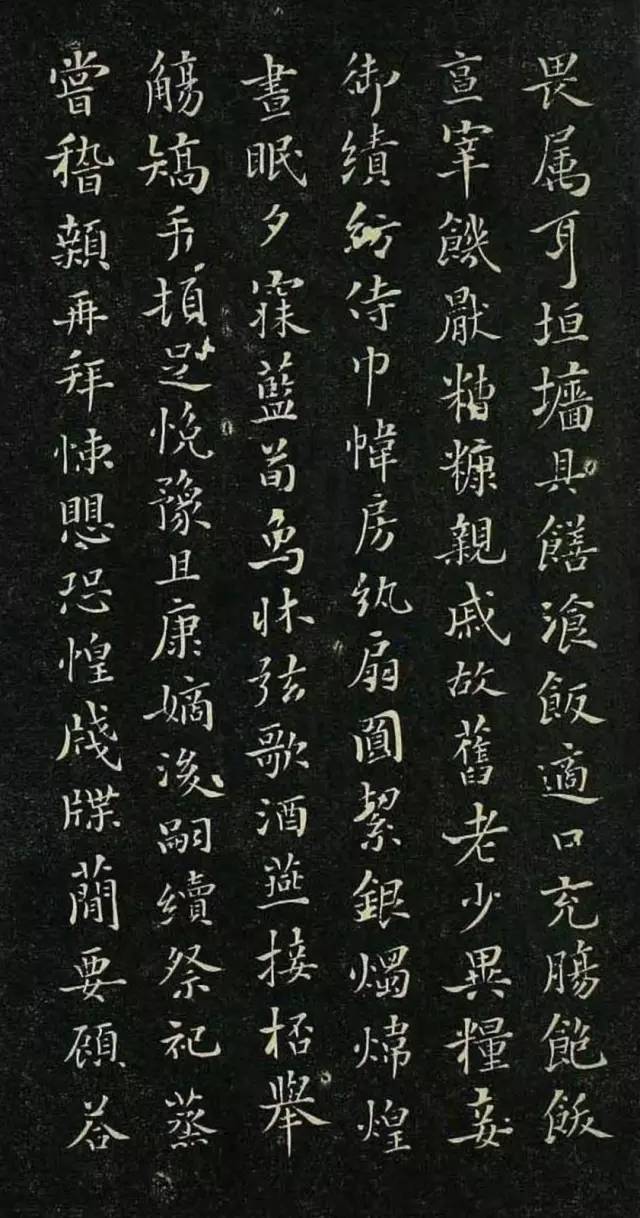 畏属耳垣墻具饍湌飯適口充膓飽飫
烹宰饑厭糟糠親戚故舊老少異糧妾
御績紡侍巾幃房紈扇圓絜銀燭煒煌
晝眠夕寐藍荀象牀弦歌酒燕接柸舉
觴矯手頓足悅豫且康嫡後嗣續祭祀蒸
嘗稽顙再拜悚懼恐惶牋牒蕳要顧荅